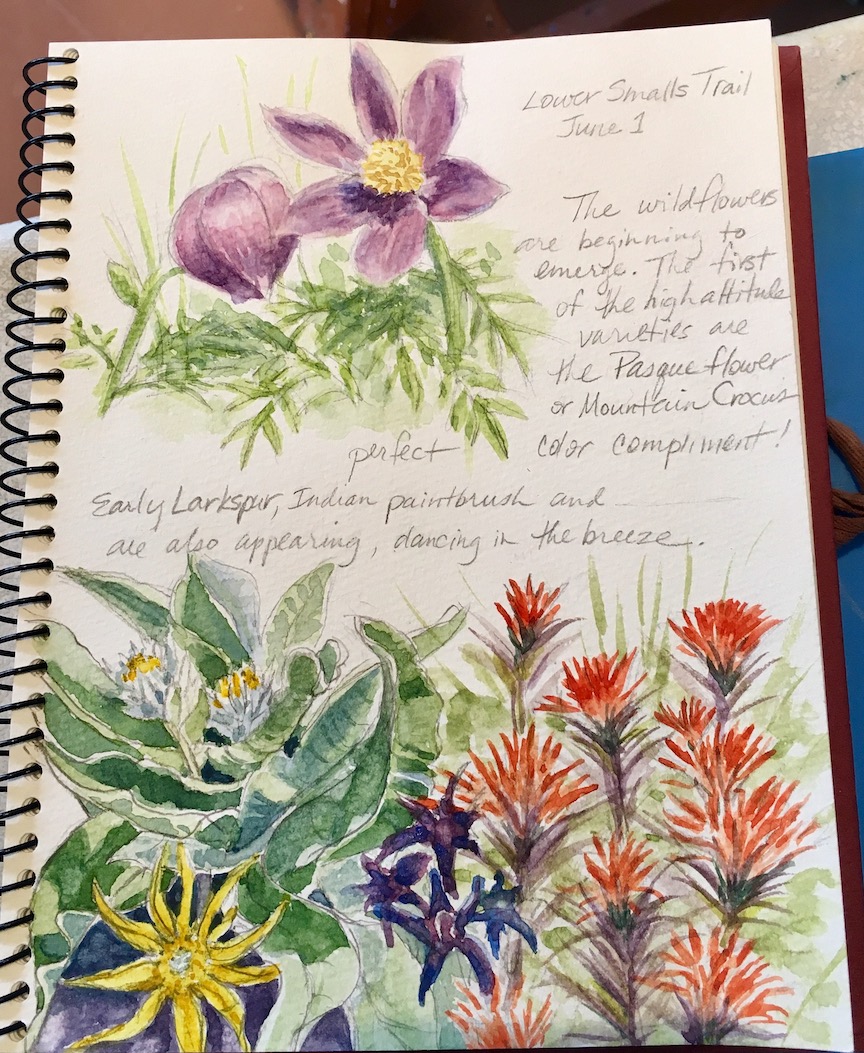 Lower Smalls Trail
June 1
The wildflowers
are beginning to
emerge. The first
of the high altitude
varieties are
the Pasque flower
or Mountain Crocus
perfect color compliment!
Early Larkspur, Indian paintbrush and
are also appearing, dancing in the breeze.